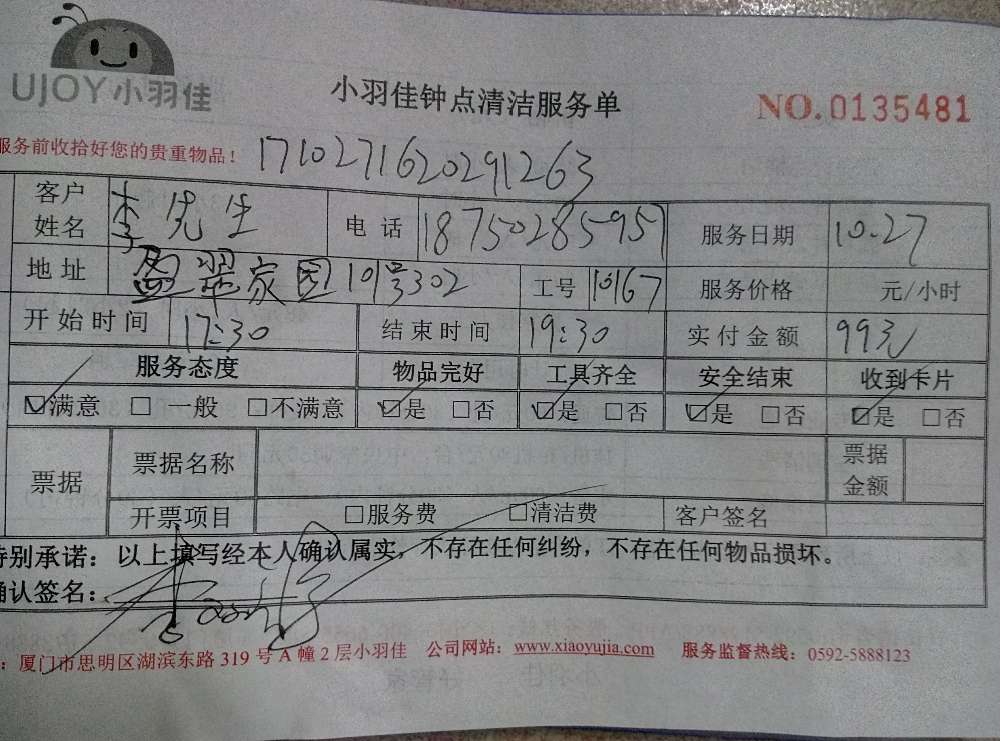 UJOY小羽佳
小羽佳钟点清洁服务单
NO.0135481
服务前收拾好您的贵重物品！
1710271620291263
客户姓名 李先生 电话 18750285957 服务日期 10.27
地址 盈翠家园10号302 工号 10167 服务价格 元/小时
开始时间 17:30 结束时间 19:30 实付金额
服务态度 物品完好 工具齐全 安全结束 收到卡片
☑满意 □一般 □不满意 ☑是 □否 ☑是 □否 ☑是 □否 ☑是 □否
票据 票据名称 票据金额
开票项目 □服务费 □清洁费 客户签名
特别承诺：以上填写经本人确认属实，不存在任何纠纷，不存在任何物品损坏。
确认签名：
：厦门市思明区湖滨东路 319 号 A 幢 2 层小羽佳 公司网站：www.xiaoyujia.com 服务监督热线：0592-5888123